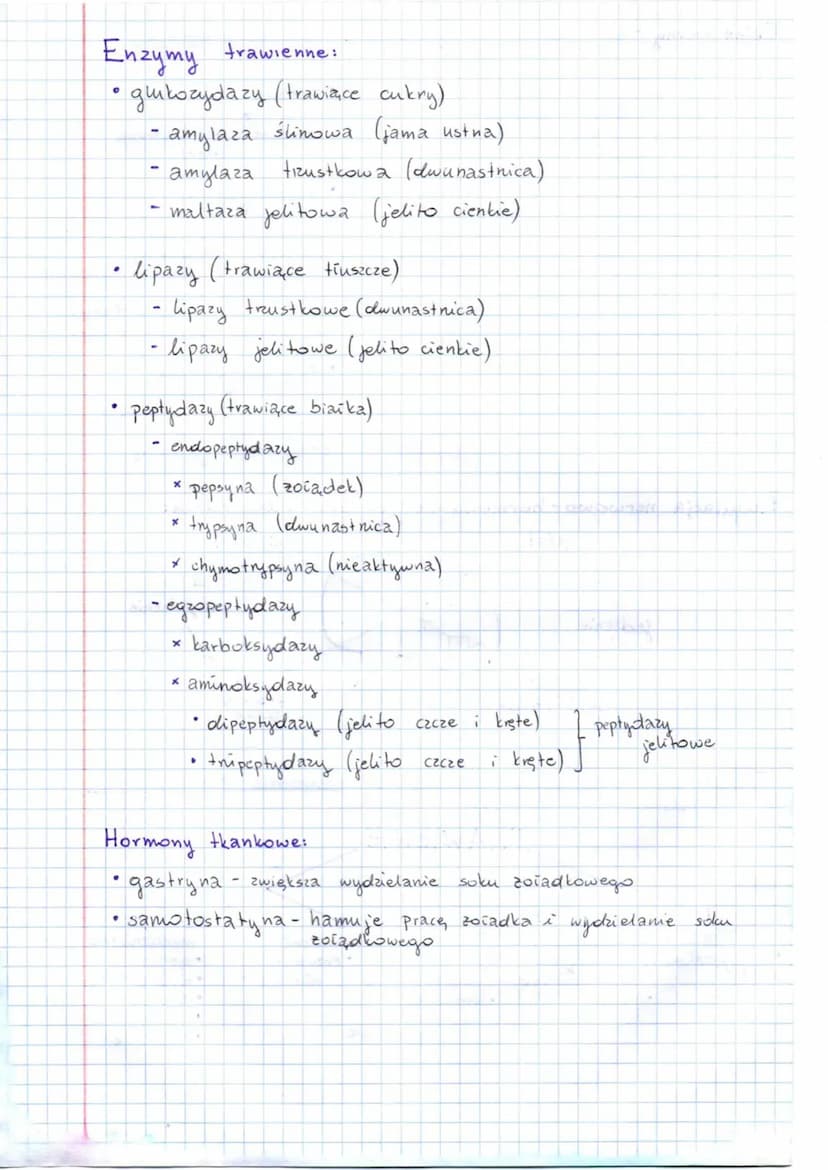 Enzymy trawienne:
• glukozydazy (trawiące cukry)
- amylaza ślinowa (jama ustna)
- amylaza trzustkowa (dwunastnica)
- maltaza jelitowa (jelito cienkie)
• lipazy (trawiące tłuszcze)
- lipazy trzustkowe (dwunastnica)
- lipazy jelitowe (jelito cienkie)
• peptydazy (trawiące białka)
- endopeptydazy
x pepsyna (żołądek)
x trypsyna (dwunastnica)
x chymotrypsyna (nieaktywna)
- egzopeptydazy
x karboksydazy
x aminoksydazy
• dipeptydazy (jelito czcze i kręte) } peptydazy
• tripeptydazy (jelito czcze i kręte) jelitowe
Hormony tkankowe:
• gastryna - zwiększa wydzielanie soku żołądkowego
• samotostatyna - hamuje pracę żołądka i wydzielanie soku
żołądkowego